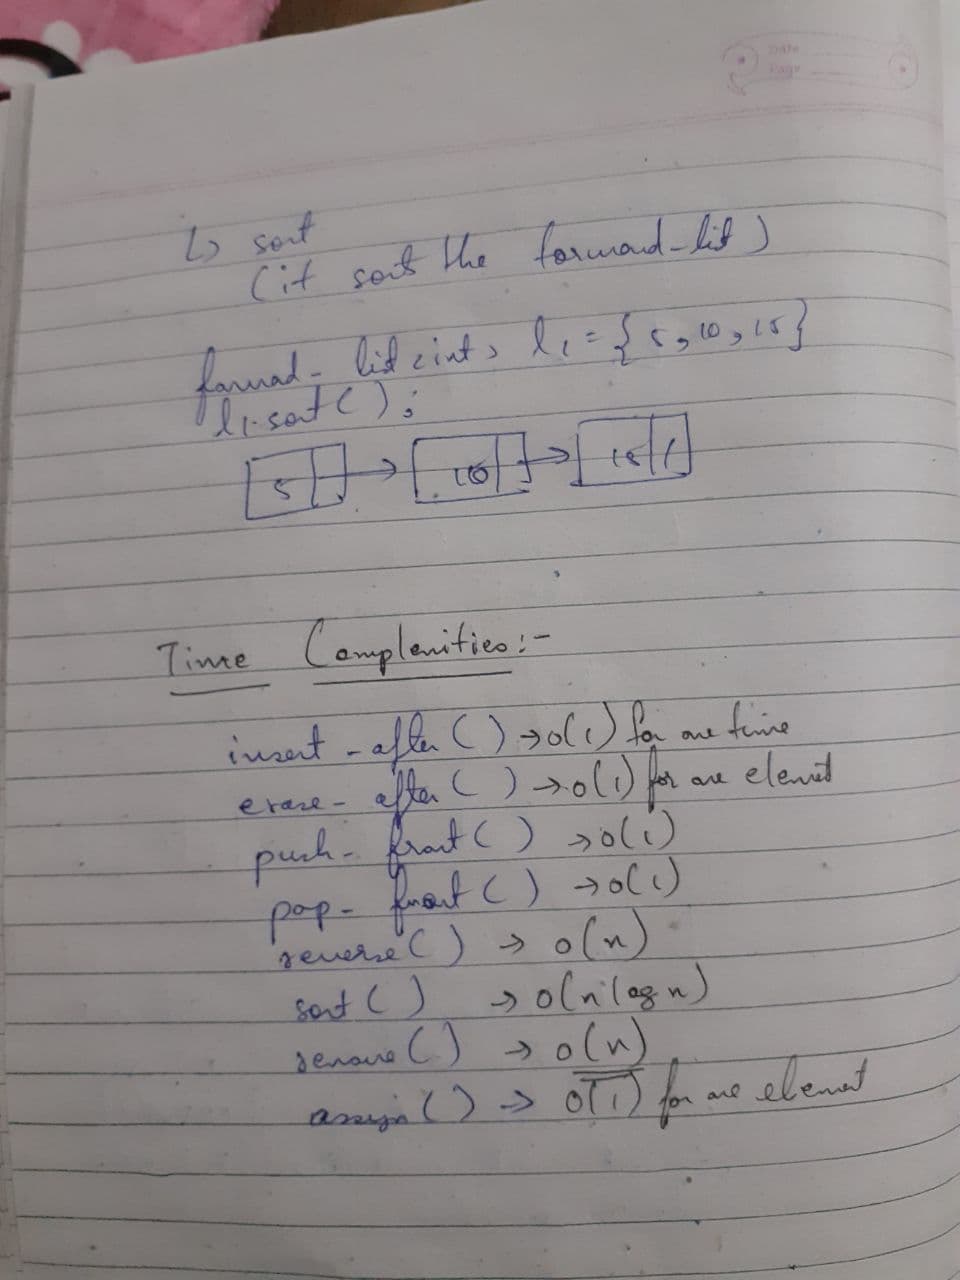 Date
Page
↳ sort
(it sort the forward-list)
forward-list<int> l1 = {5, 10, 15}
l1.sort();
5 → 10 → 15
Time Complexities:-
insert-after() → o(1) for one time
erase-after() → o(1) for one element
push-front() → o(1)
pop-front() → o(1)
reverse() → o(n)
sort() → o(n log n)
remove() → o(n)
assign() → o(1) for one element